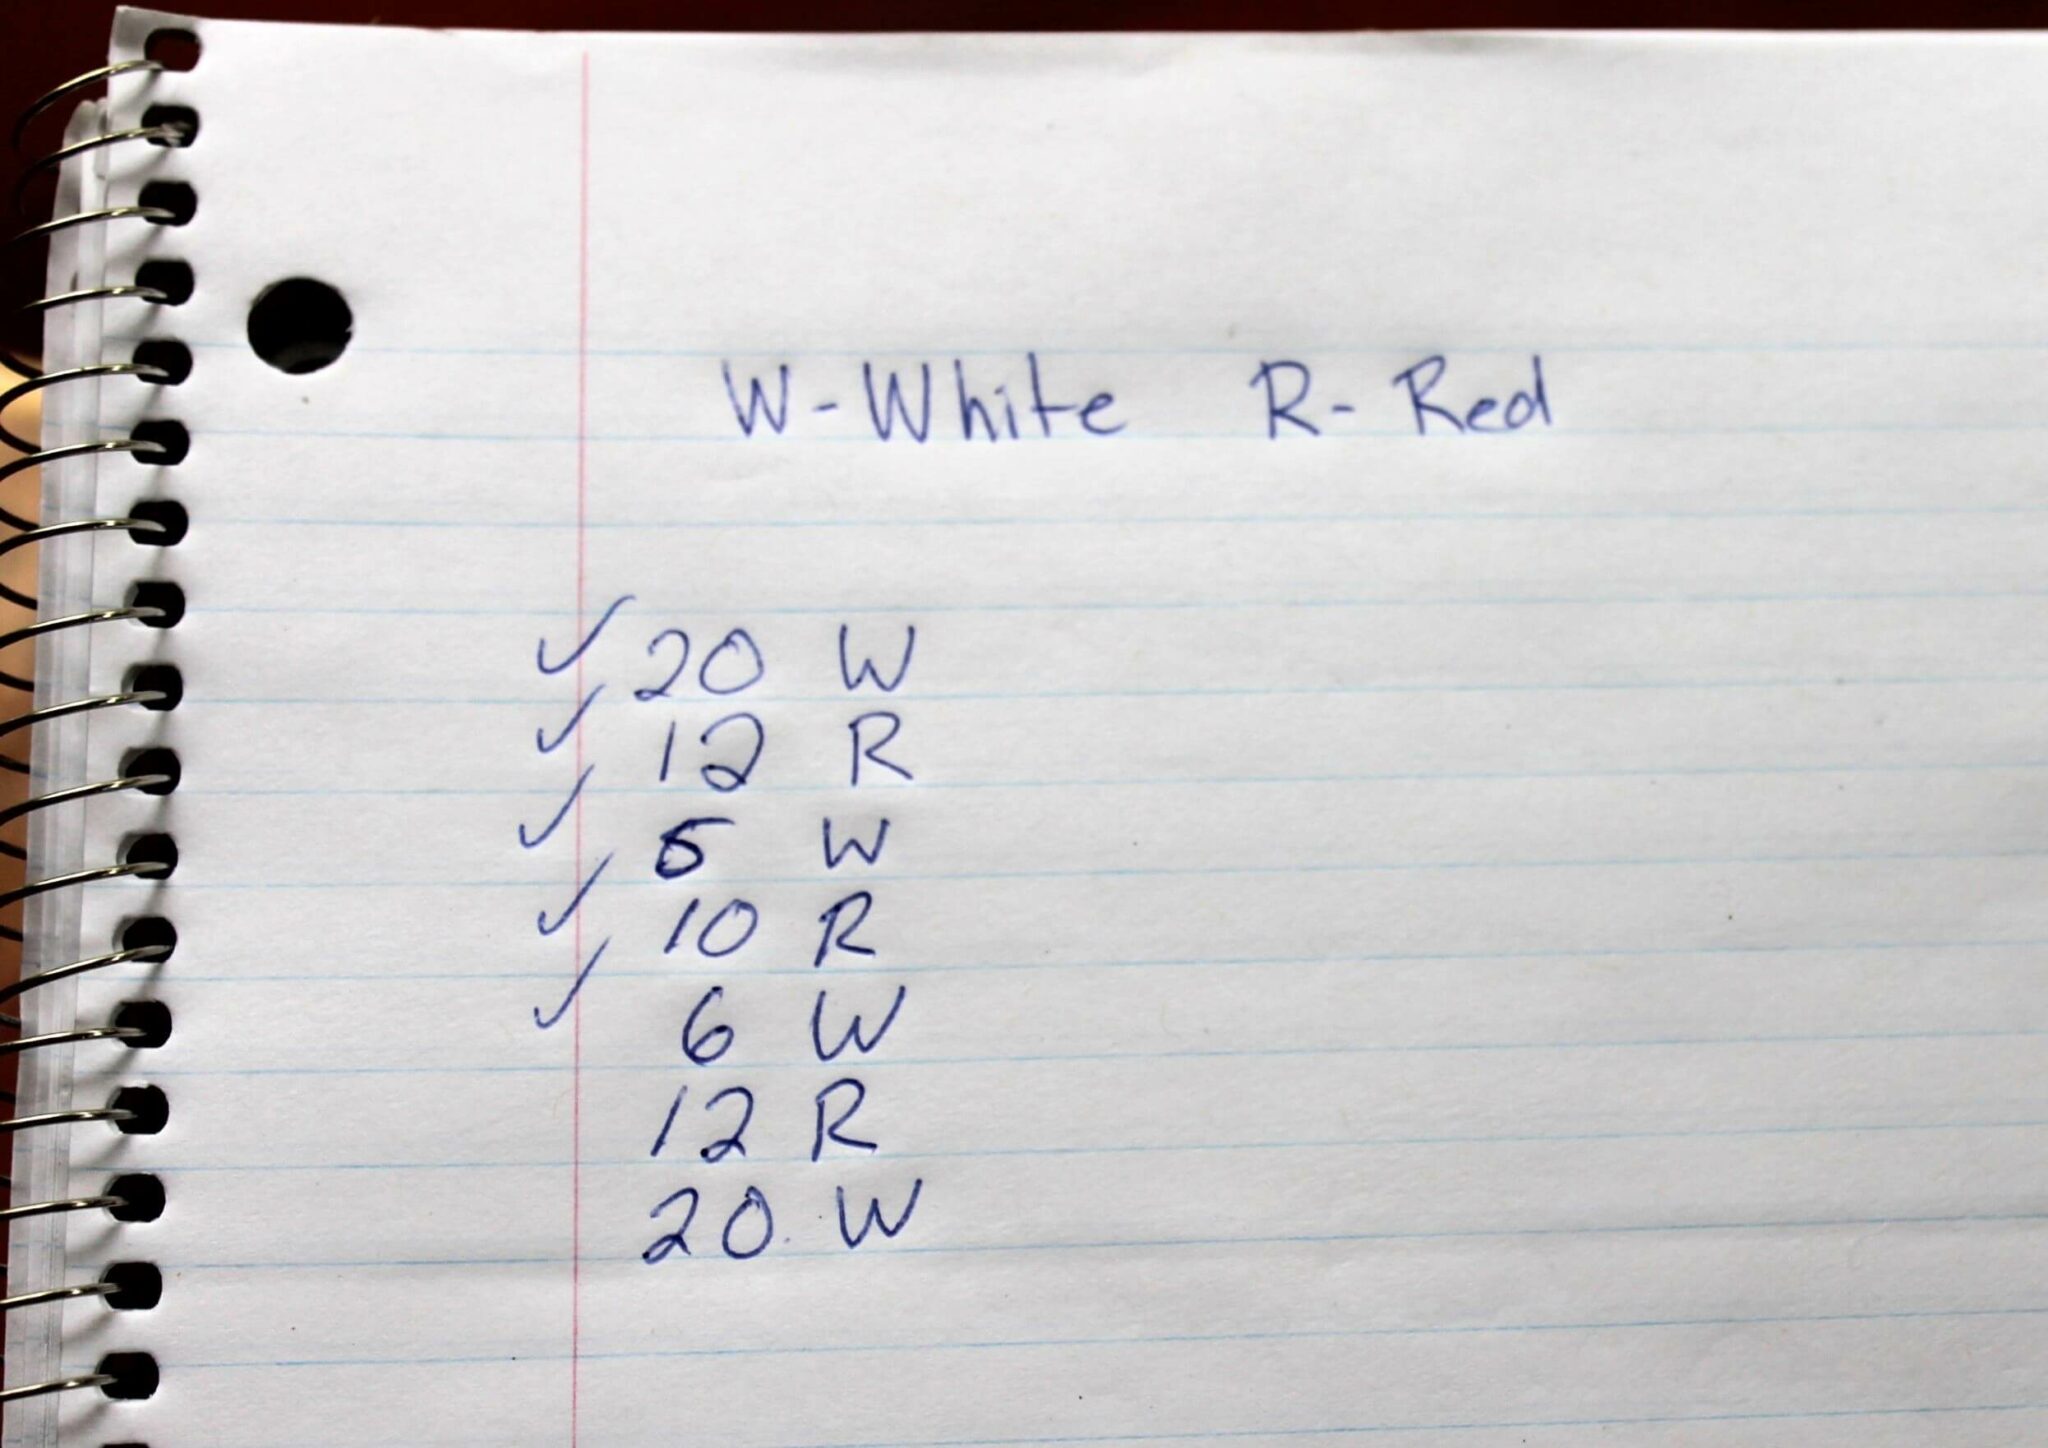 W-White R-Red
✓ 20 W
✓ 12 R
✓ 5 W
✓ 10 R
✓ 6 W
12 R
20 W